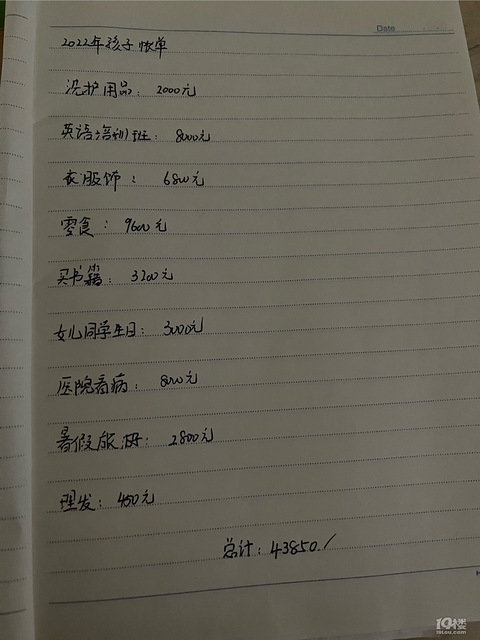 Date
2022年孩子帐单
洗护用品: 2000元
英语培训班: 8000元
衣服饰: 6800元
零食: 9600元
买书籍: 3200元
女儿同学生日: 3000元
医院看病: 8000元
暑假旅游: 2800元
理发: 450元
总计: 43850.
19楼
19lou.com